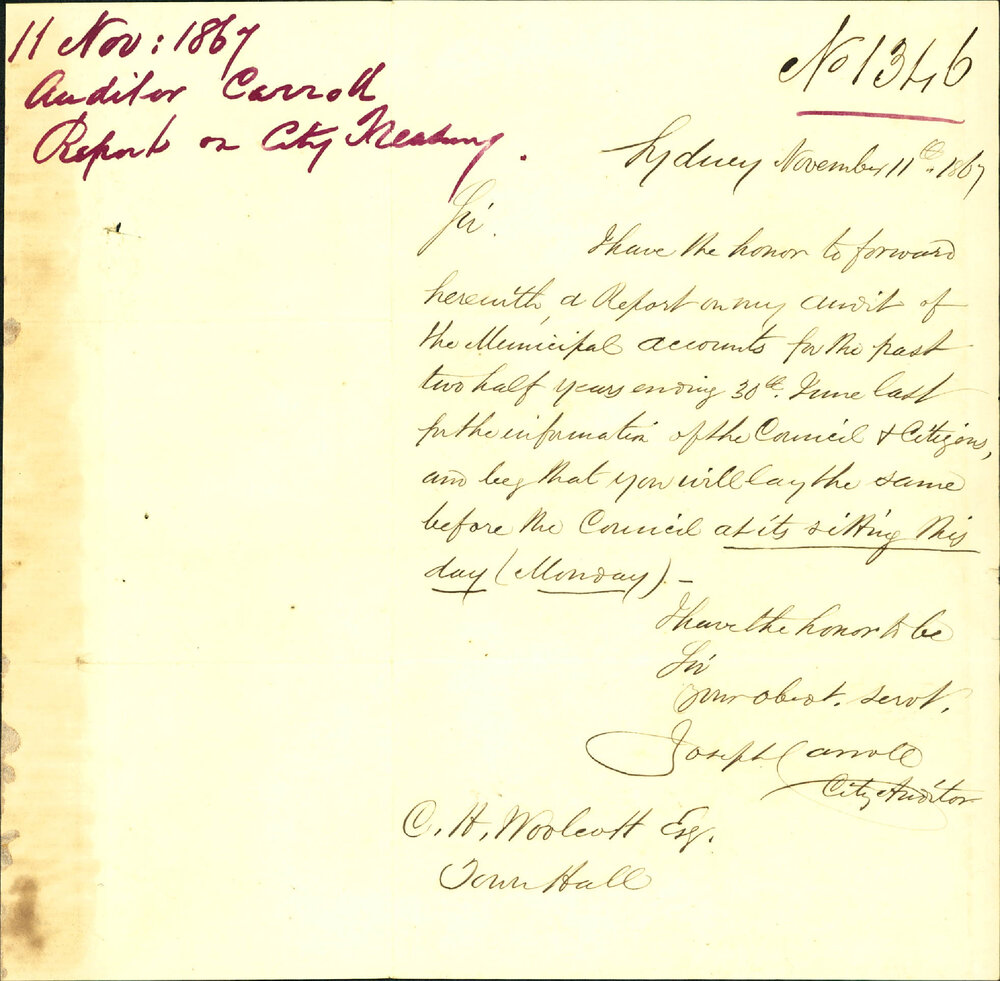 11 Nov: 1867
Auditor Carroll
Report on City Treasury.
No 1346
Sydney November 11th. 1867
Sir.
I have the honor to forward
herewith, a Report on my audit of
the Municipal accounts for the past
two half years ending 30th. June last
for the information of the Council & Citizens,
and beg that you will lay the same
before the Council at its sitting this
day (Monday). -
I have the honor to be
Sir
Your obedt. servt.
Joseph Carroll
City Auditor
C. H. Woolcott Esq.
Town Hall